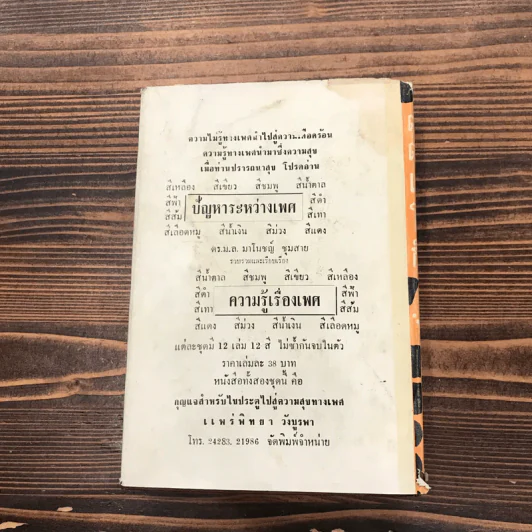 ความไม่รู้ทางเพศนำไปสู่ความเดือดร้อน
ความรู้ทางเพศนำมาซึ่งความสุข
เมื่อท่านปรารถนาสุข โปรดอ่าน
สีเหลือง สีเขียว สีชมพู สีน้ำตาล
สีฟ้า ปัญหาระหว่างเพศ สีดำ
สีส้ม สีเทา
สีเลือดหมู สีน้ำเงิน สีม่วง สีแดง
ดร.ม.ล. มาโนชญ์ ชุมสาย
รวบรวมและเรียบเรียง
สีน้ำตาล สีชมพู สีเขียว สีเหลือง
สีดำ ความรู้เรื่องเพศ สีฟ้า
สีเทา สีส้ม
สีแดง สีม่วง สีน้ำเงิน สีเลือดหมู
แต่ละชุดมี 12 เล่ม 12 สี ไม่ซ้ำกันจบในตัว
ราคาเล่มละ 38 บาท
หนังสือทั้งสองชุดนี้ คือ
กุญแจสำหรับไขประตูไปสู่ความสุขทางเพศ
แพร่พิทยา วังบูรพา
โทร. 24283, 21986 จัดพิมพ์จำหน่าย